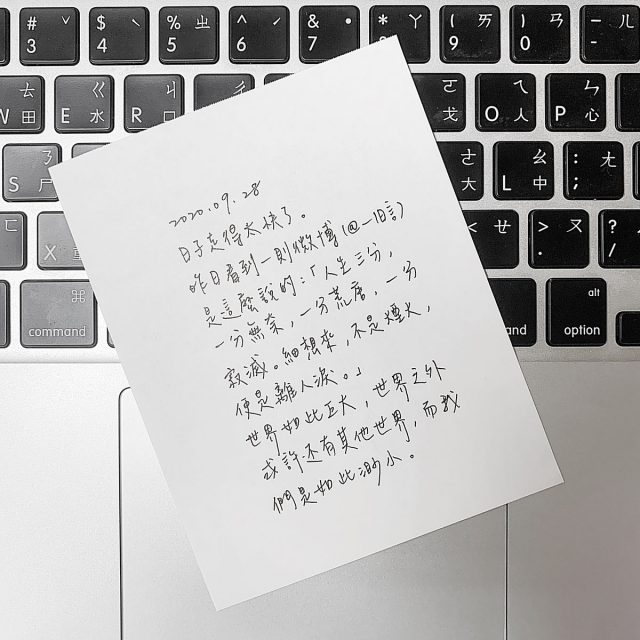 # ˇ
3
$ ˋ
4
% ㄓ
5
^ ˊ
6
& ˙
7
* ㄚ
( ㄞ
9
) ㄢ
0
— ㄦ
-
W ㄊ 田
E ㄍ 水
R ㄐ 口
ㄔ
ㄛ 戈
O ㄟ 人
P ㄣ 心
S ㄋ 尸
ㄜ 大
L ㄠ 中
: ㄤ
;
ㄈ
X
< ㄝ
,
> ㄡ
.
? ㄥ
/
⌘
command
alt
option
2020.09.28
日子走得太快了。
昨日看到一則微博(@一旧訁)
是這麼說的:「人生三分,
一分無奈,一分荒唐,一分
寂滅。細想來,不是煙火,
便是離人淚。」
世界如此巨大,世界之外
或許還有其他世界,而我
們是如此渺小。